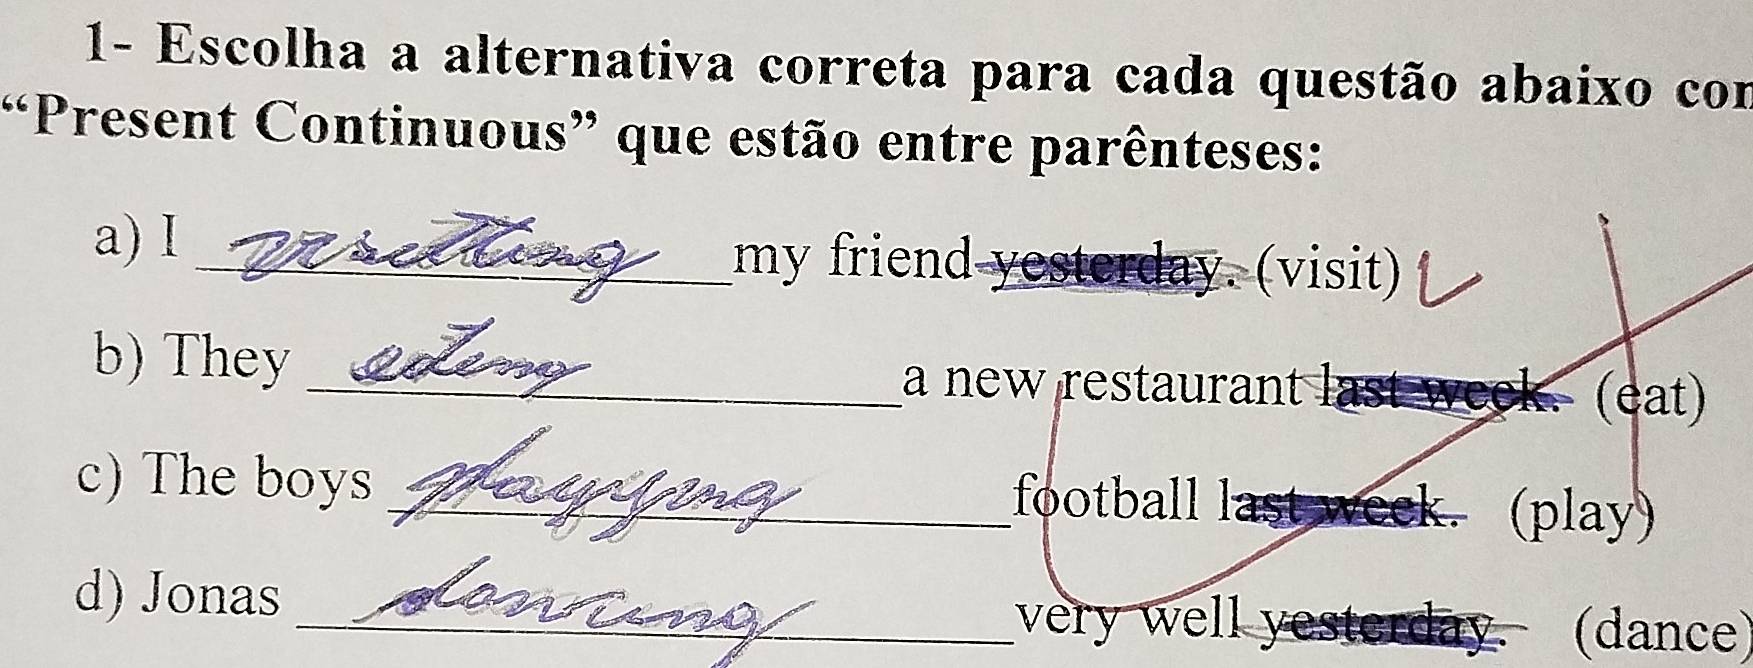 1- Escolha a alternativa correta para cada questão abaixo com
“Present Continuous” que estão entre parênteses:
a) I visitting my friend yesterday. (visit)
b) They eteing a new restaurant last week. (eat)
c) The boys playying football last week. (play)
d) Jonas dancing very well yesterday. (dance)